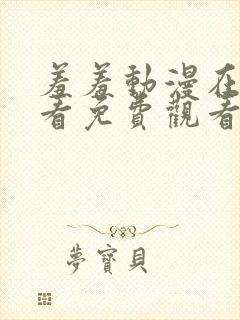 羞羞動漫在
看免費觀看
夢寶貝